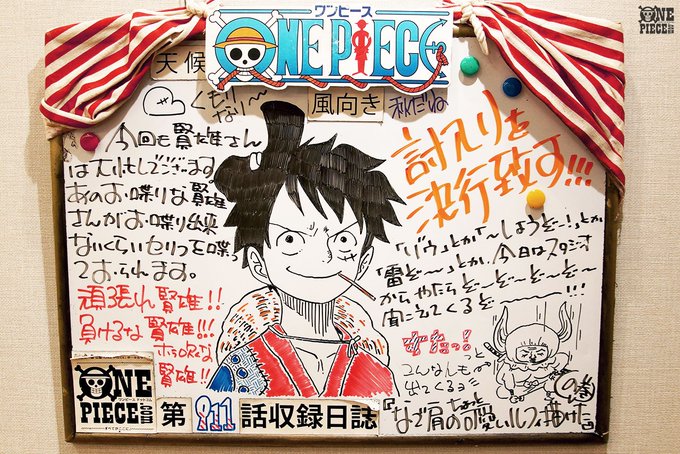 ワンピース
ONE PIECE
ONE
PIECE
.COM
天候
くもり
なり〜
風向き
秋だね
今回も賢雄さん
は大忙しでございます。
あのお喋りな賢雄
さんがお喋り出来
ないくらいセリフを喋っ
ておられます。
頑張れ賢雄!!
負けるな賢雄!!!
賢雄!!
討入りを
決行致す!!!
「ゾウ」とか「〜しようぞ〜!」とか
「雷ぞ〜」とか、今日はスタジオ
からやたらぞ〜ぞ〜ぞ〜ぞ〜
聞こえてくるぞ
こんなんもっと
出てくるヨ
の巻
『なで肩のちょっと口悪いルフィ描けた』
ONE
PIECE
.COM
ワンピース ドットコム
第911話収録日誌